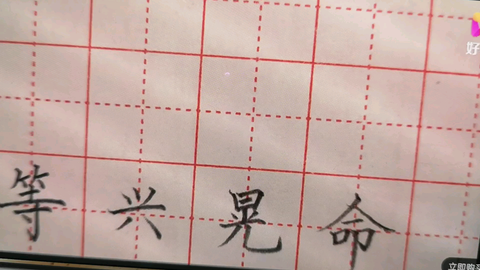 好
等兴晃命
立即购买